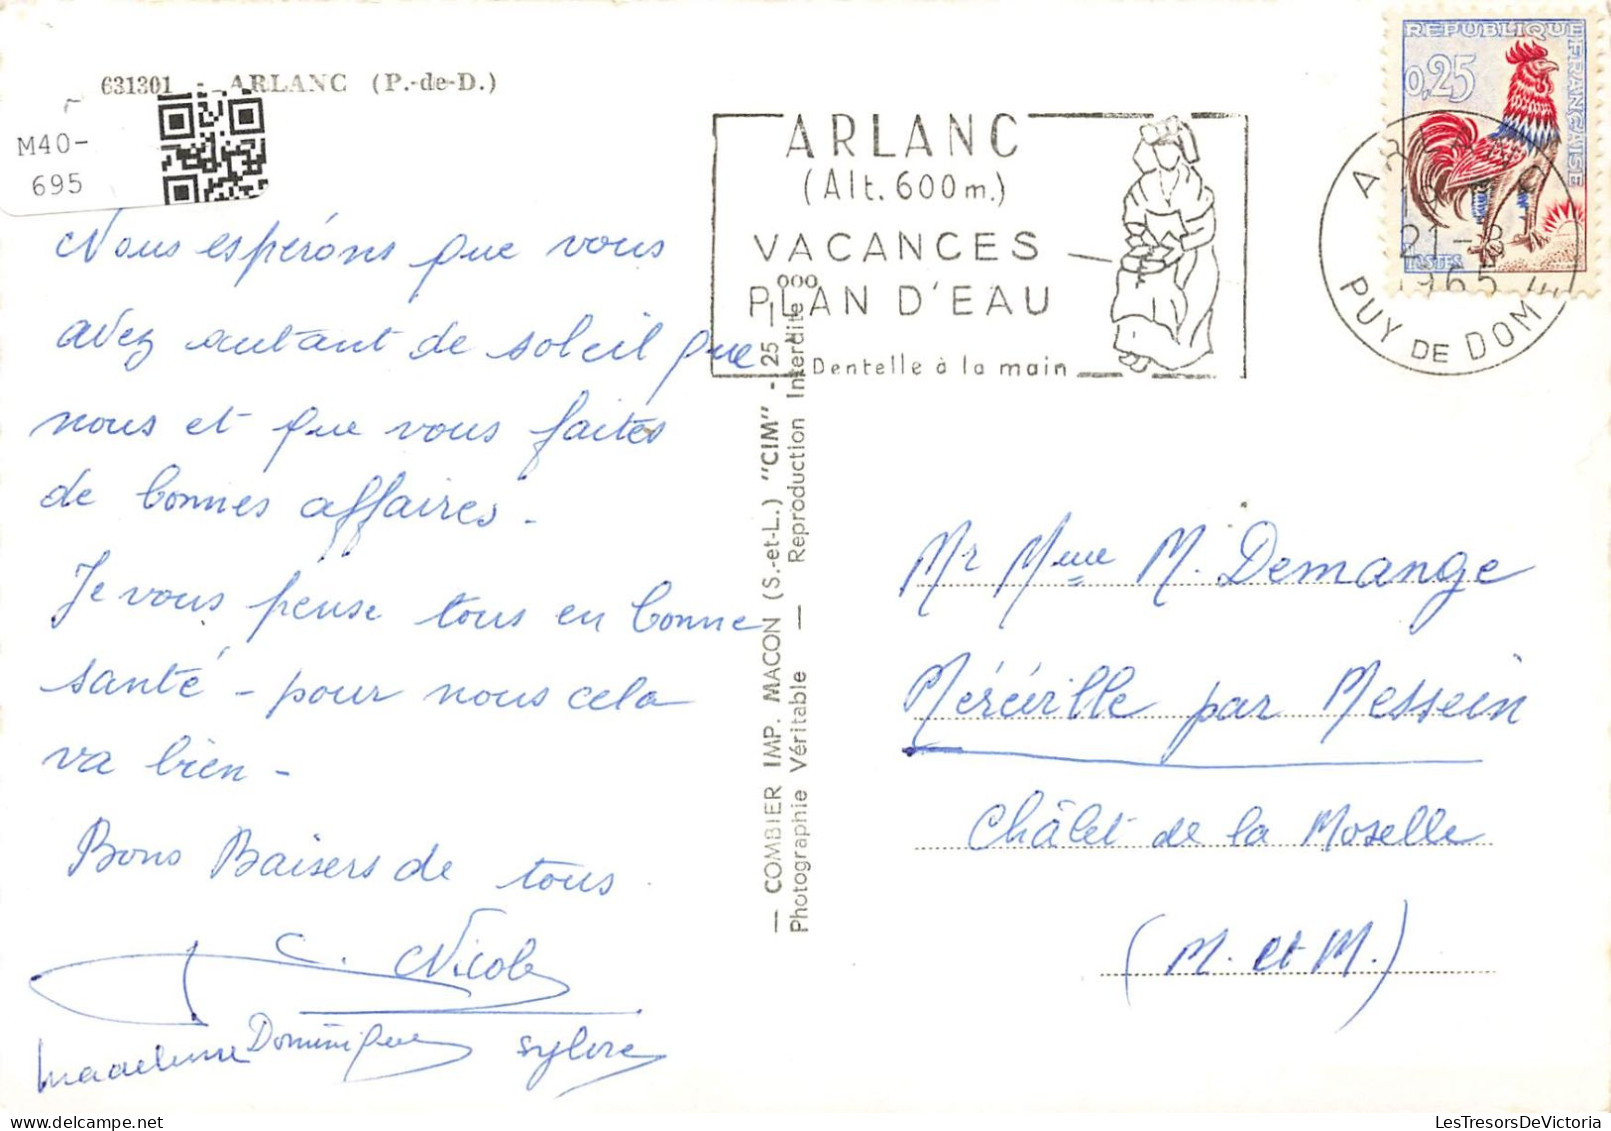 631301 - ARLANC (P.-de-D.)
M40-
695
Nous espérons que vous
avez autant de soleil que
nous et que vous faites
de bonnes affaires -
Je vous pense tous en bonne
santé - pour nous cela
va bien -
Bons Baisers de tous
C. Nicole
Madeleine Dominique Sylvie
— COMBIER IMP. MACON (S.-et-L.) "CIM" - 25
Photographie Véritable — Reproduction Interdite
ARLANC
(Alt. 600 m.)
VACANCES
PLAN D'EAU
Dentelle à la main
REPUBLIQUE FRANÇAISE
0,25
POSTES
ARLANC
21-8
1965
PUY DE DOME
Mr Mme M. Demange
Méréville par Messein
Châlet de la Moselle
(M. et M.)
LesTresorsDeVictoria